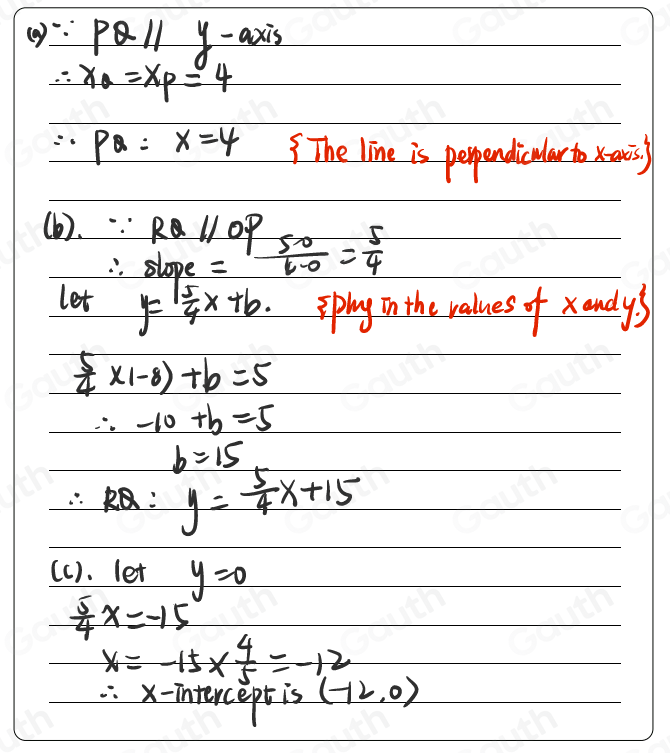 (a) ∵ PQ // y-axis
∴ xQ = xP = 4
∴ PQ : x=4 {The line is perpendicular to x-axis.}
(b). ∵ RQ // OP
∴ slope = 5-0/4-0 = 5/4
let y= 5/4 x + b. {plug in the values of x and y.}
5/4 ×(-8) + b = 5
∴ -10 + b = 5
b=15
∴ RQ : y = 5/4 x + 15
(c). let y=0
5/4 x = -15
x = -15 × 4/5 = -12
∴ x-intercept is (-12,0)